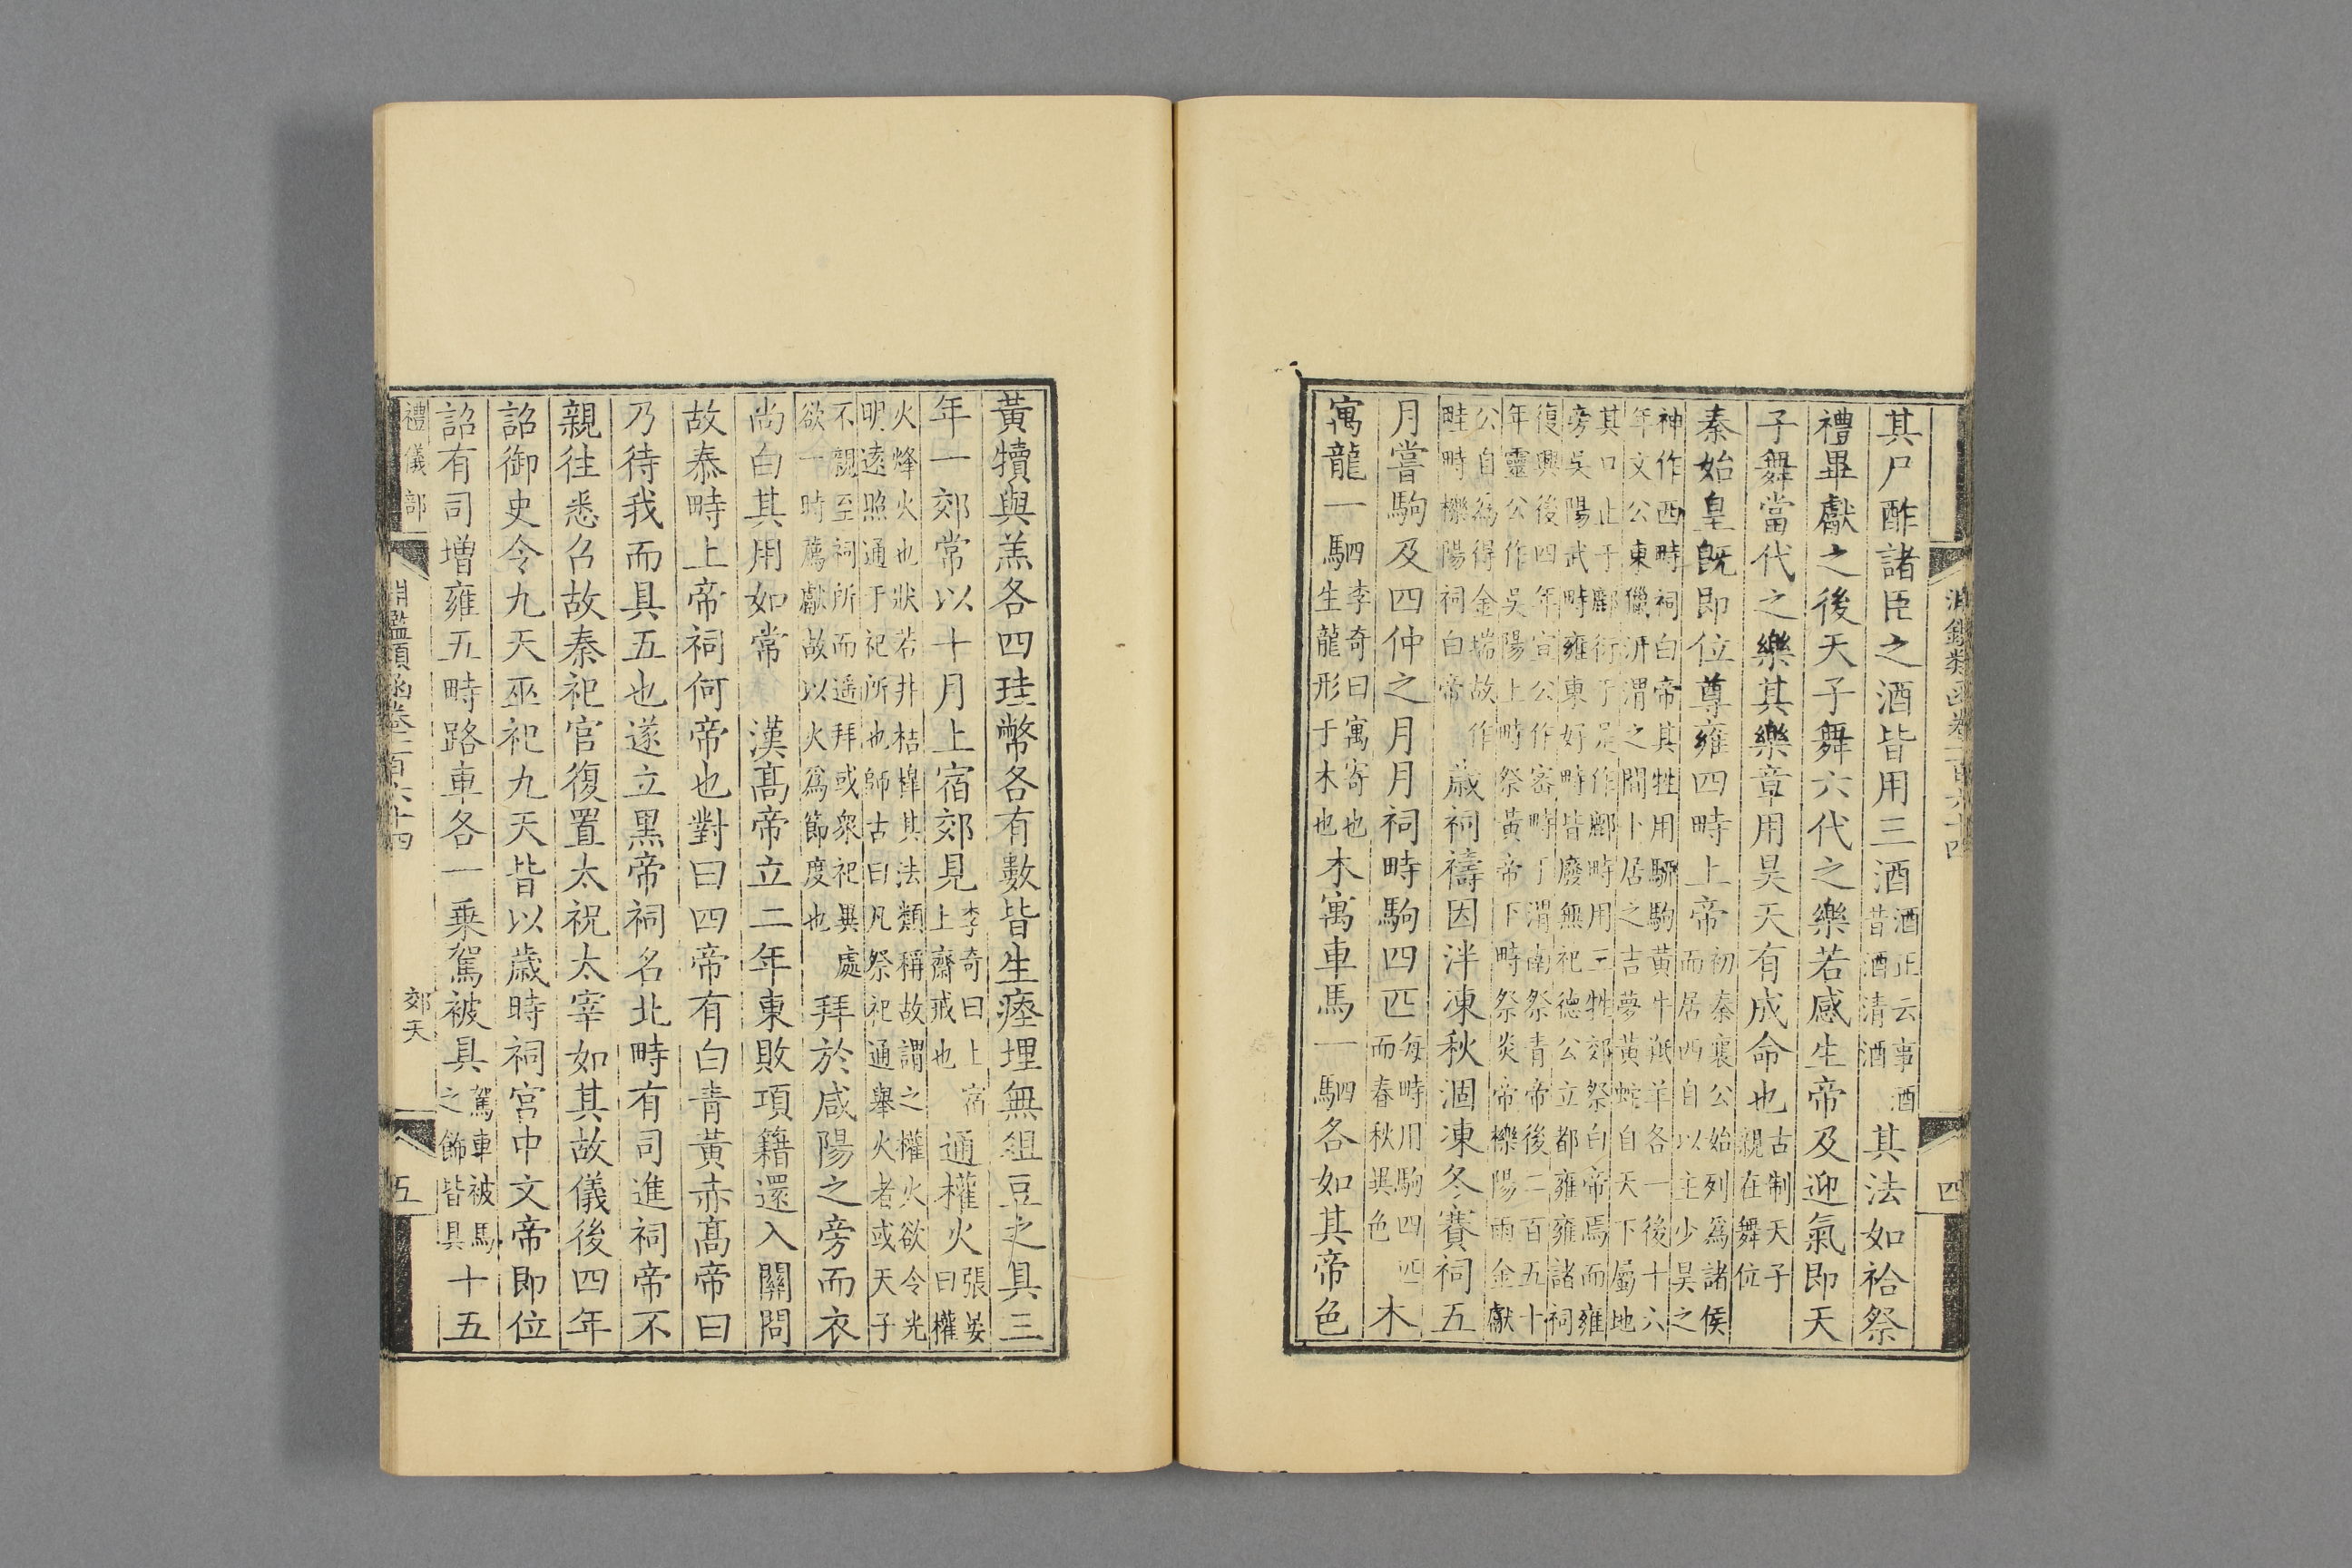 淵鑑類函卷一百六十四 四
其尸酢諸臣之酒皆用三酒酒正云事酒昔酒清酒其法如祫祭
禮畢獻之後天子舞六代之樂若感生帝及迎氣即天
子舞當代之樂其樂章用昊天有成命也古制天子親在舞位
秦始皇既即位尊雍四畤上帝初秦襄公始列爲諸侯而居西自以主少昊之
神作西畤祠白帝其牲用駵駒黃牛羝羊各一後十六
年文公東獵汧渭之間卜居之吉夢黃蛇自天下屬地
其口止于鄜衍于是作鄜畤用三牲郊祭白帝焉而雍
旁吳陽武畤雍東好畤皆廢無祀德公立都雍雍諸祠
復興後四年宣公作密畤于渭南祭青帝後二百五十
年靈公作吳陽上畤祭黃帝下畤祭炎帝櫟陽雨金獻
公自爲得金瑞故作畦畤櫟陽祠白帝歲祠禱因泮凍秋涸凍冬賽祠五
月嘗駒及四仲之月月祠畤駒四匹每畤用駒四匹而春秋異色木
寓龍一駟李奇曰寓寄也生龍形于木也木寓車馬一駟各如其帝色
黃犢與羔各四珪幣各有數皆生瘞埋無俎豆之具三
年一郊常以十月上宿郊見李奇曰上宿上齋戒也通權火張晏曰權
火烽火也狀若井桔橰其法類稱故謂之權火欲令光
明遠照通于祀所也師古曰凡祭祀通舉火者或天子
不親至祠所而遥拜或衆祀異處欲一時薦獻故以火爲節度也拜於咸陽之旁而衣
尚白其用如常 漢髙帝立二年東敗項籍還入關問
故秦畤上帝祠何帝也對曰四帝有白青黃赤髙帝曰
乃待我而具五也遂立黑帝祠名北畤有司進祠帝不
親往悉召故秦祀官復置太祝太宰如其故儀後四年
詔御史令九天巫祀九天皆以歲時祠宫中文帝即位
詔有司增雍五畤路車各一乗駕被具駕車被馬之飾皆具十五
禮儀部 淵鑑類函卷一百六十四 郊天 五